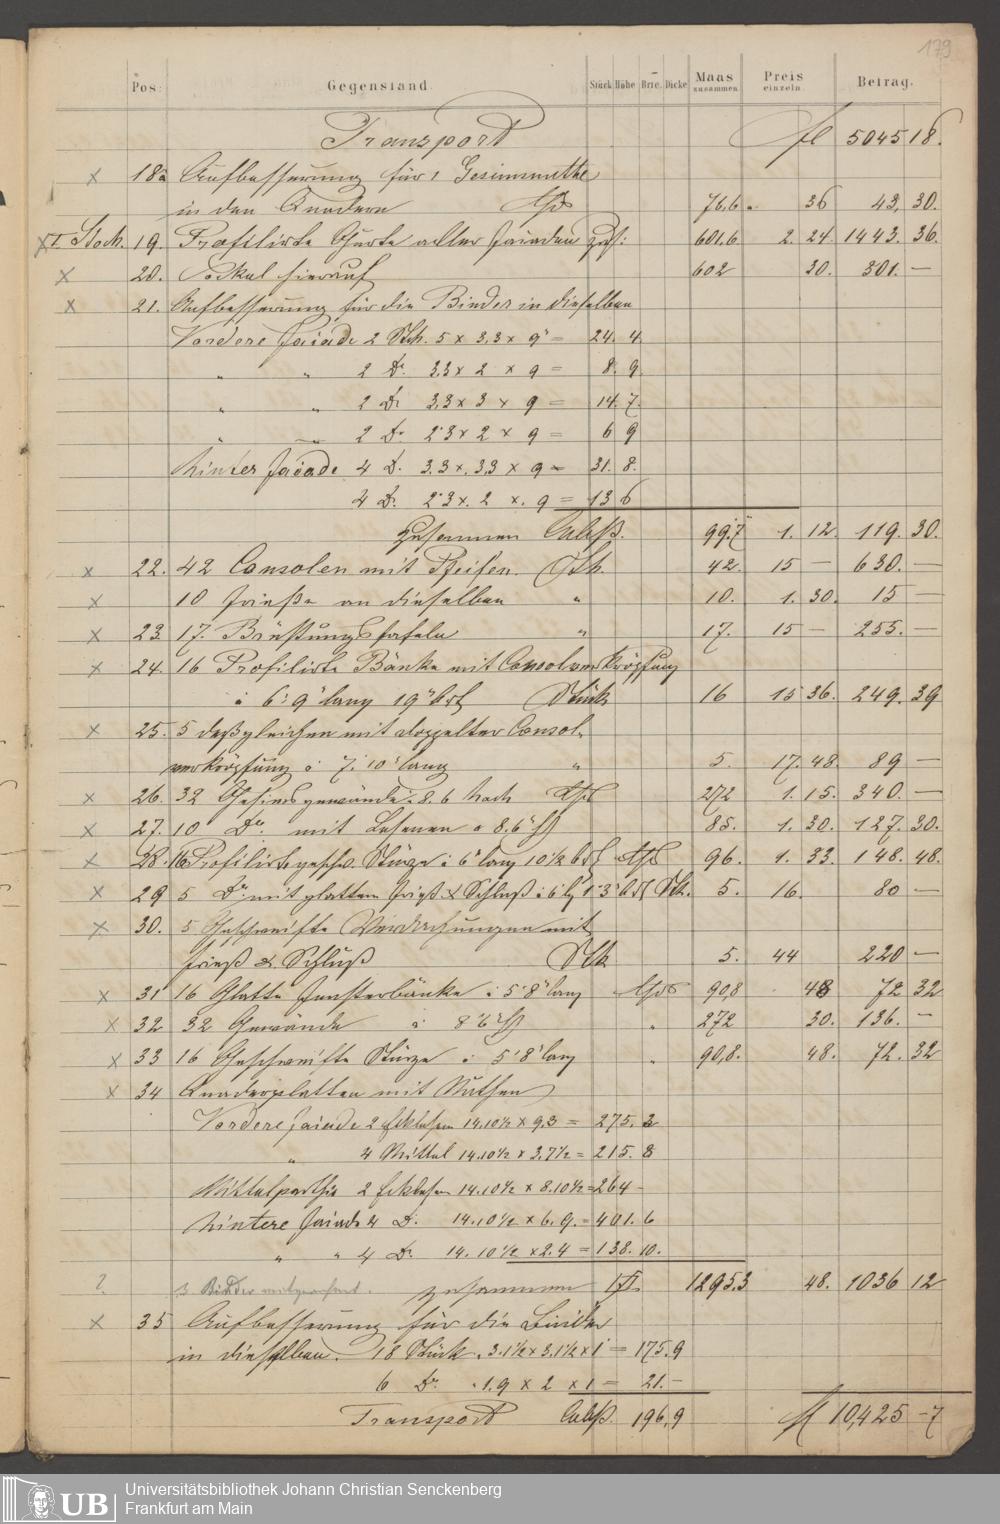 179
Pos: Gegenstand. Stück Höhe Brte. Dicke Maas zusammen Preis einzeln. Betrag.
Transport fl 5045 18.
x 18a Aufbesserung für 1 Gesimsnuthe
in den Quadern 76,6 . 36 43. 30.
x I. Stock. 19. Profilirte Gurte aller Faiaden 601.6 2. 24 1443. 36.
x 20. Sockel hierauf 602 30. 301. —
x 21. Aufbesserung für die Binder in dieselben
Vordere Faiade 2 Stck. 5 x 3,3 x 9" = 24. 4
" " 2 Do. 3,3 x 2 x 9 = 8. 9.
" " 2 Do 3,3 x 3 x 9 = 14. 7.
" " 2 Do 2'3 x 2 x 9 = 6 9
Hinter Faiade 4 D. 3.3 x 3,3 x 9 = 31. 8.
4 Do. 2'3 x 2 x 9 = 13 6
zusammen Cubß. 99.7 1. 12. 119. 30.
x 22. 42 Consolen mit Pfeifen. Stk. 42. 15 — 630. —
x 10 Frieße an dieselben " 10. 1. 30. 15 —
x 23. 17. Brüstungstafeln " 17. 15 — 255. —
x 24. 16 Profilirte Bänke mit Consolverkröpfung
à 6' 9" lang 19" brt Stück 16 15 36. 249. 39
x 25. 5 deßgleichen mit doppelter Consol-
verkröpfung à 7' 10" lang " 5. 17. 48. 89 —
x 26. 32 Gesimsgewände à 8. 6 hoch 272 1. 15. 340. —
x 27. 10 Do. mit Lesenen à 8,6" h 85. 1. 30. 127. 30.
x 28. 16 Profilirte geschw. Stürze à 6' lang 10 1/2 brt 96. 1. 33. 148. 48.
x 29 5 Do mit glattem Frieß & Schluß à 6' lg 1' 3" brt Stk. 5. 16. 80 —
x 30. 5 Geschweifte Verdachungen mit
Frieß & Schluß Stk 5. 44 220 —
x 31 16 Glatte Fensterbänke à 5' 8" lang 90,8 . 48 72 32
x 32 32 Gewände à 8' 6" h " 272 30. 136. —
x 33 16 Geschweifte Stürze à 5' 8" lang " 90,8. 48. 72. 32
x 34 Quaderplatten mit Nuthen
Vordere Faiade 2 Ecklesen 14.10 1/2 x 9,3 = 275. 2
" 4 Mittel 14.10 1/2 x 3.7 1/2 = 215. 8
Mittelparthie 2 Ecklesen 14.10 1/2 x 8.10 1/2 = 264 —
Hintere Faiade 4 D. 14.10 1/2 x 6. 9. = 401. 6
" " 4 Do. 14. 10 1/2 x 2. 4 = 138. 10.
?. 3 Binder zusammen 1295.3 48. 1036 12
x 35 Aufbesserung für die Binder
in dieselben. 18 Stück . 3.1 1/2 x 3.1 1/2 x 1 = 175.9
6 Do. . 1.9 x 2 x 1 = 21. —
Transport Cubß. 196,9 fl 10,425 – 7
Universitätsbibliothek Johann Christian Senckenberg
Frankfurt am Main
UB